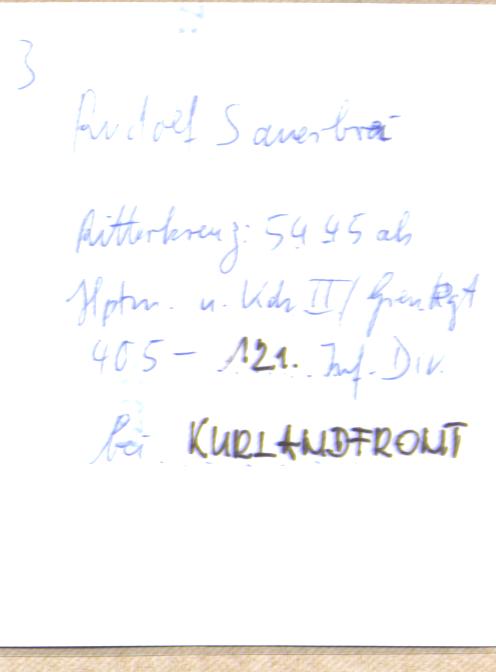 3
Rudolf Sauerbrei
Ritterkreuz: 5445 als
Hptm. u. Kdr II/ Gren. Rgt
405 - 121. Inf. Div.
bei KURLANDFRONT